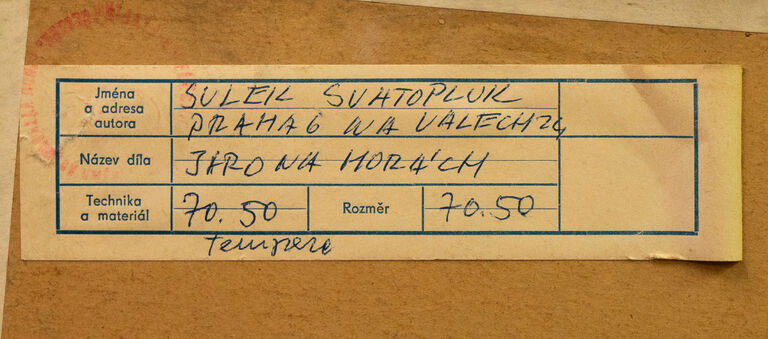 Jména
a adresa
autora
SULEK SVATOPLUK
PRAHA 6 NA VALECH 24
Název díla
JARO NA HORÁCH
Technika
a materiál
70.50
Rozměr
70.50
tempera